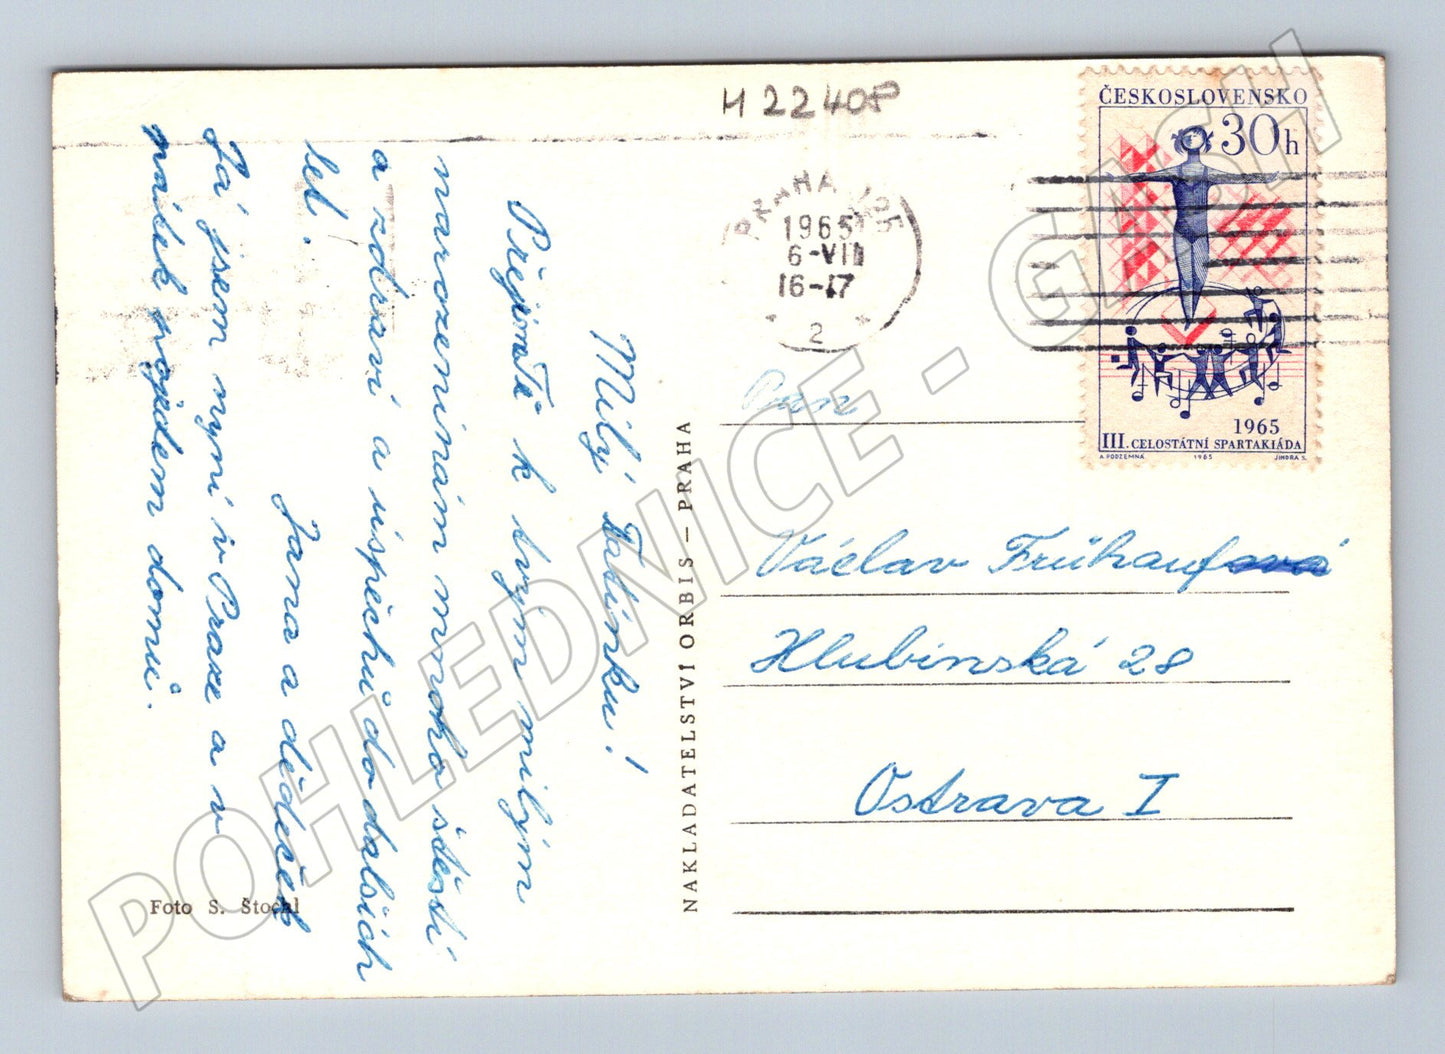 H 22408
ČESKOSLOVENSKO
30h
1965
III. CELOSTÁTNÍ SPARTAKIÁDA
A PODZEMNÁ 1965 JINDRA S.
PRAHA
1965
6-VII
16-17
2
Milý Vašínku!
Přijmi k tvým milým
narozeninám mnoho štěstí
a zdraví a úspěchů do dalších
let.
Jana a dědeček
Já jsem nyní v Praze a v
pátek pojedem domů.
Foto S. Štochl
NAKLADATELSTVÍ ORBIS – PRAHA
Pan
Václav Frühauf
Hlubinská 28
Ostrava I
POHLEDNICE - GASH